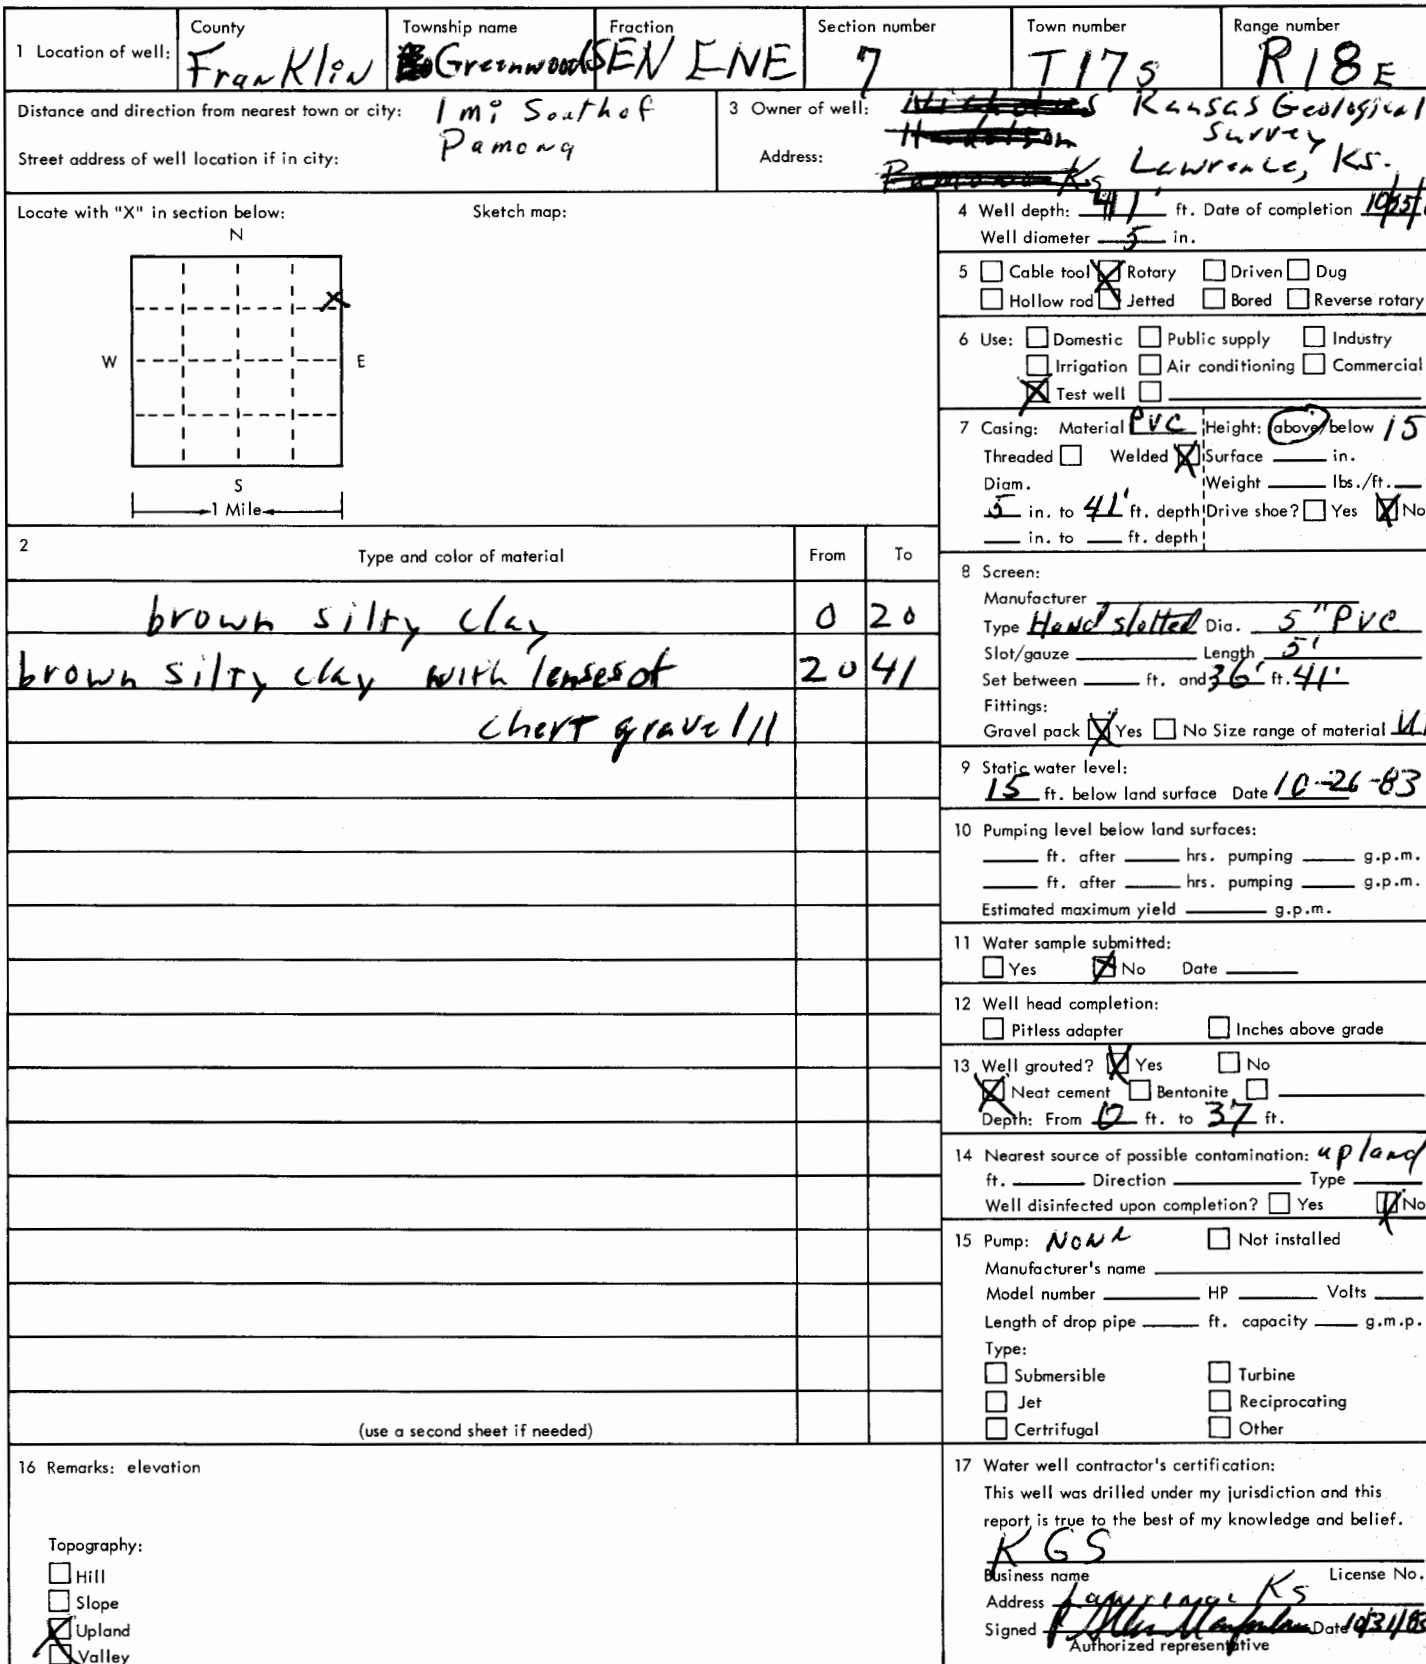 1 Location of well: County Township name Fraction Section number Town number Range number
Franklin Greenwood SEN ENE 7 T17S R18E
Distance and direction from nearest town or city: 1 mi South of
Pamona
Street address of well location if in city:
3 Owner of well: Kansas Geological
Survey
Address: Lawrence, Ks.
Locate with "X" in section below: Sketch map:
N
W E
S
1 Mile
2 Type and color of material From To
brown silty clay 0 20
brown silty clay with lenses of 20 41
chert gravel
(use a second sheet if needed)
4 Well depth: 41' ft. Date of completion 10/25/
Well diameter 5 in.
5 Cable tool X Rotary Driven Dug
Hollow rod Jetted Bored Reverse rotary
6 Use: Domestic Public supply Industry
Irrigation Air conditioning Commercial
X Test well
7 Casing: Material PVC Height: above/below 15
Threaded Welded X Surface in.
Diam. Weight lbs./ft.
5 in. to 41' ft. depth Drive shoe? Yes X No
in. to ft. depth
8 Screen:
Manufacturer
Type Hand slotted Dia. 5" PVC
Slot/gauze Length 5'
Set between ft. and 36' ft. 41'
Fittings:
Gravel pack X Yes No Size range of material
9 Static water level:
15 ft. below land surface Date 10-26-83
10 Pumping level below land surfaces:
ft. after hrs. pumping g.p.m.
ft. after hrs. pumping g.p.m.
Estimated maximum yield g.p.m.
11 Water sample submitted:
Yes X No Date
12 Well head completion:
Pitless adapter Inches above grade
13 Well grouted? X Yes No
X Neat cement Bentonite
Depth: From 0 ft. to 37 ft.
14 Nearest source of possible contamination: upland
ft. Direction Type
Well disinfected upon completion? Yes X No
15 Pump: None Not installed
Manufacturer's name
Model number HP Volts
Length of drop pipe ft. capacity g.m.p.
Type:
Submersible Turbine
Jet Reciprocating
Certrifugal Other
16 Remarks: elevation
Topography:
Hill
Slope
X Upland
Valley
17 Water well contractor's certification:
This well was drilled under my jurisdiction and this
report is true to the best of my knowledge and belief.
KGS
Business name License No.
Address Lawrence Ks
Signed Date 10/31/83
Authorized representative